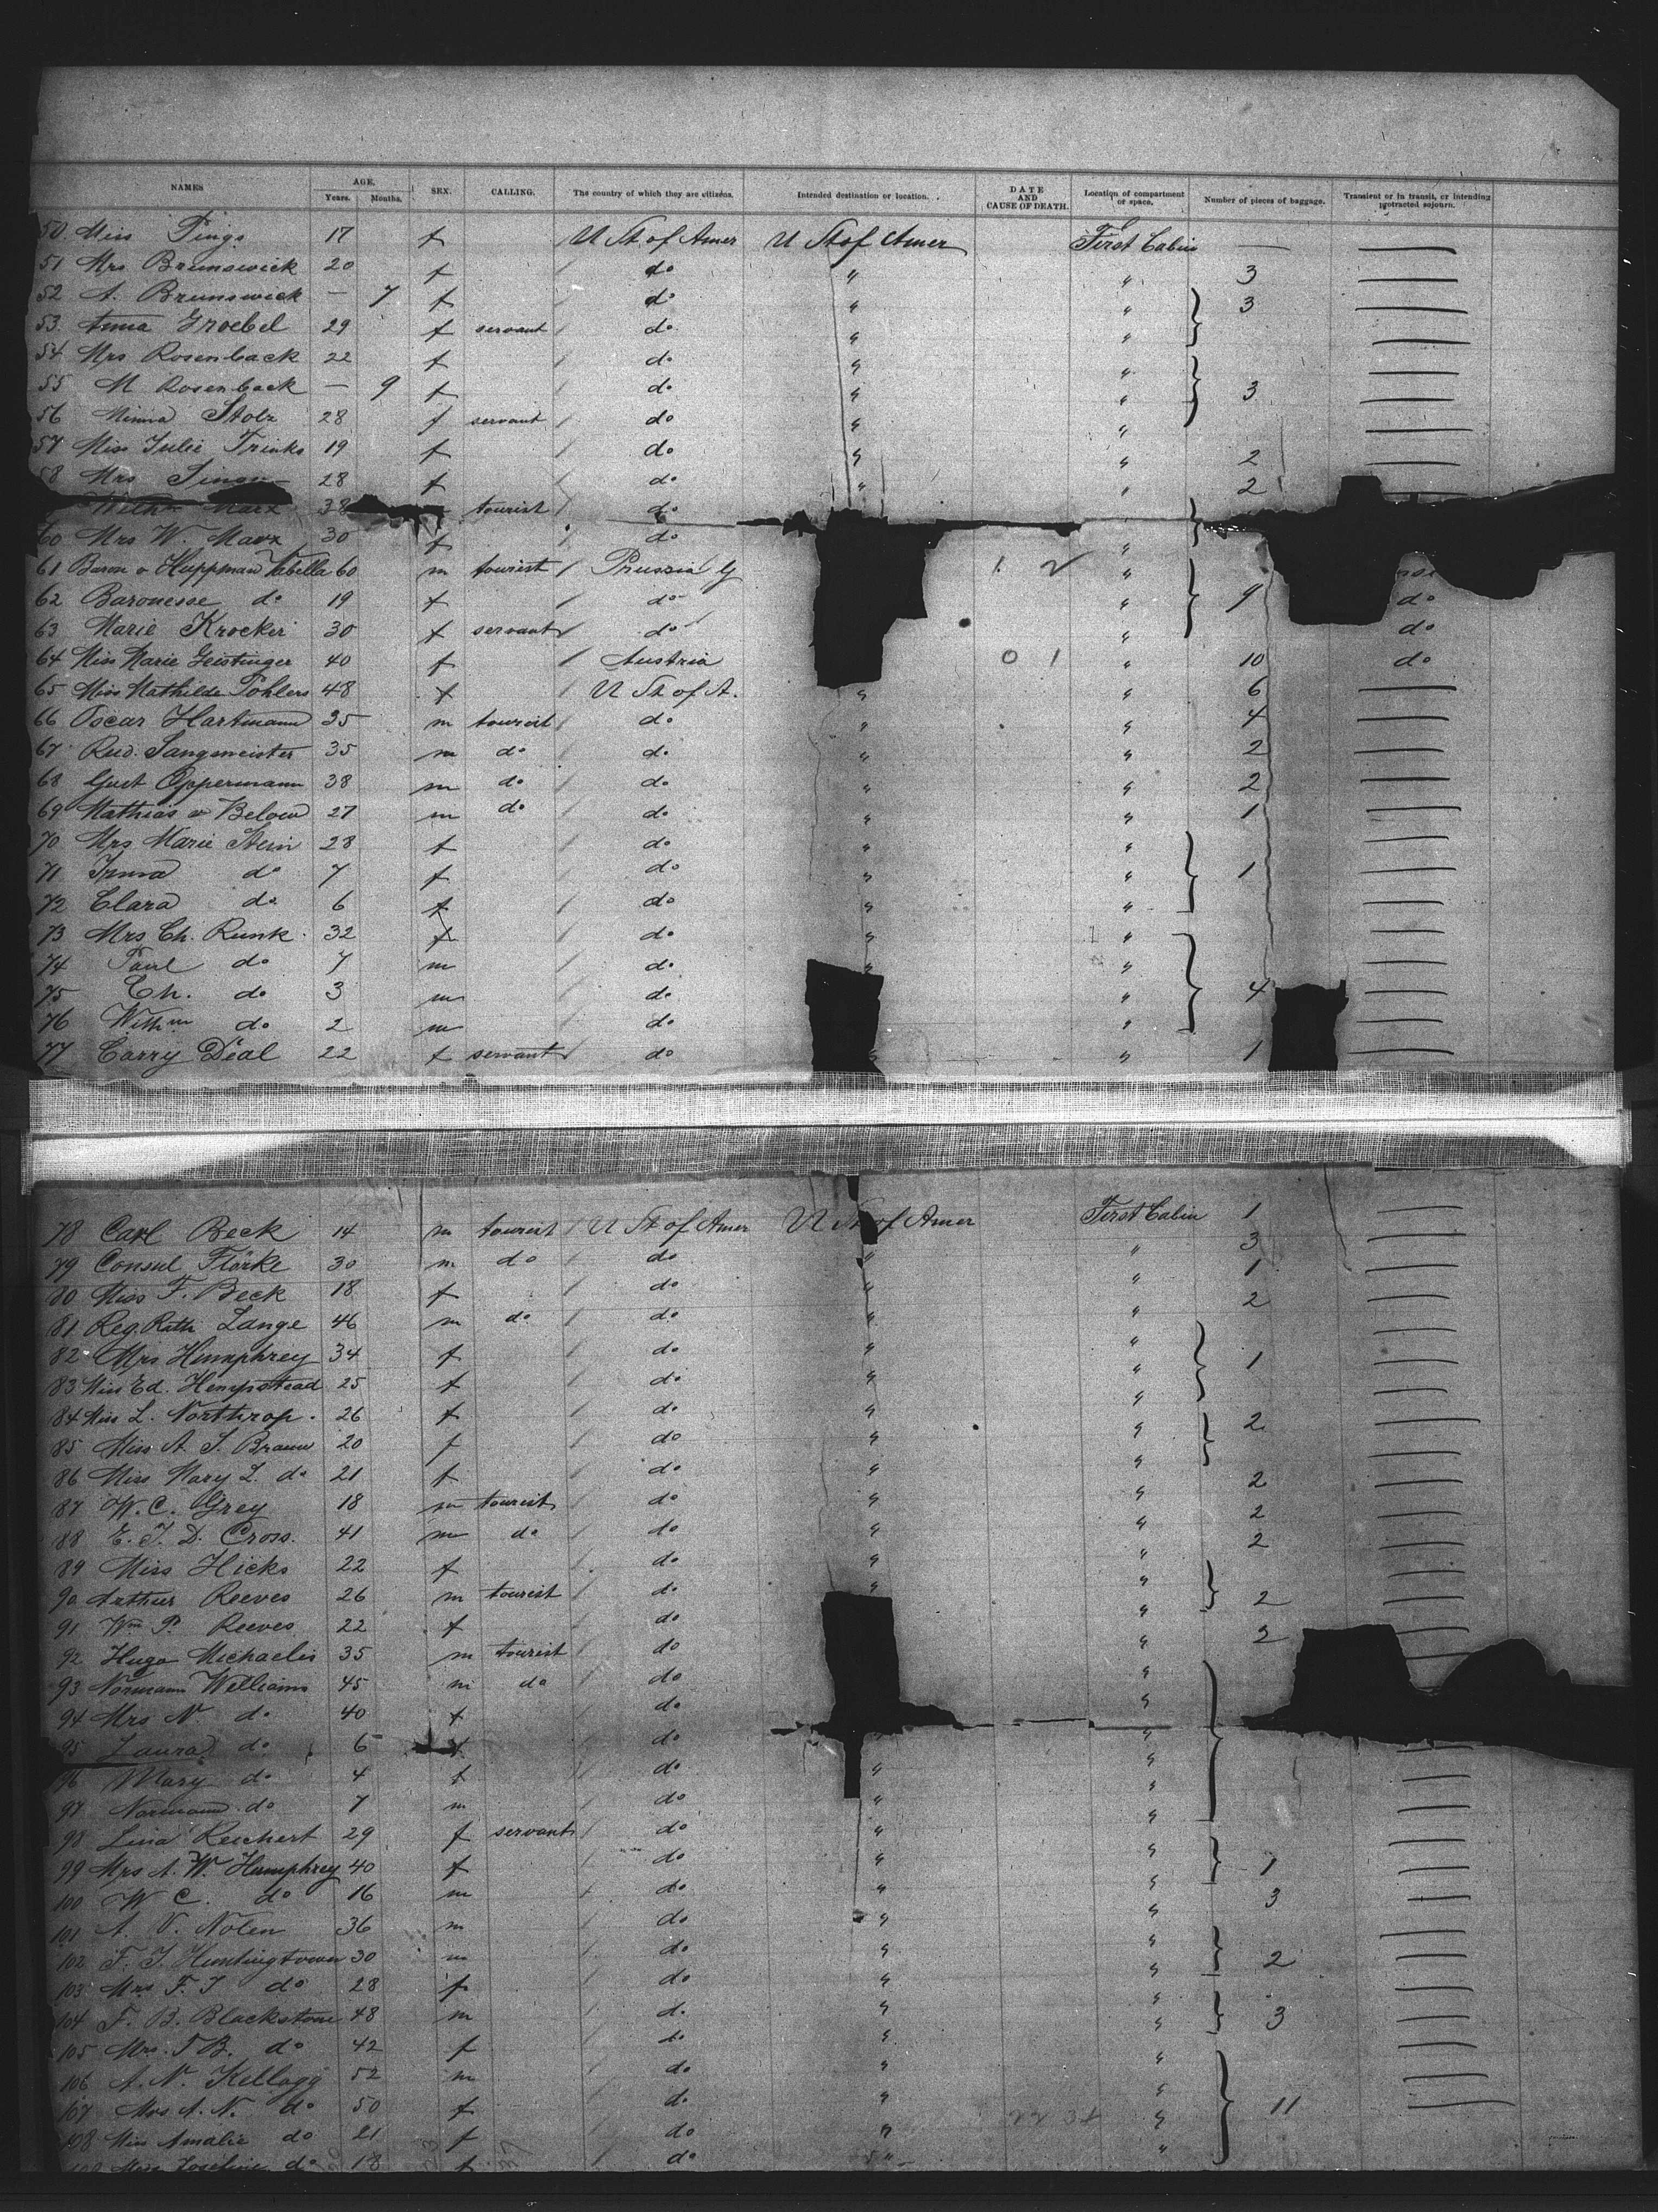 NAMES AGE. Years. Months. SEX. CALLING. The country of which they are citizens. Intended destination or location. DATE AND CAUSE OF DEATH. Location of compartment or space. Number of pieces of baggage. Transient or in transit, or intending protracted sojourn.
50 Miss Pings 17 f U St. of Amer U St of Amer First Cabin —
51 Mrs Brunswick 20 f do " " 3
52 A. Brunswick — 7 f do " " 3
53 Anna Groebel 29 f servant do " "
54 Mrs Rosenback 22 f do " "
55 M Rosenback — 9 f do " " 3
56 Minna Stolz 28 f servant do " "
57 Miss Julie Trinks 19 f do " " 2
58 Mrs 28 f do " " 2
Wilhm Marx 38 tourist do
60 Mrs W. Marx 30 f do "
61 Baron v Huppman Vabella 60 m tourist Prussia 1 2 "
62 Baronesse do 19 f do " 9 do
63 Marie Krocker 30 f servant do " do
64 Miss Marie Geistinger 40 f Austria 0 1 " 10 do
65 Miss Mathilde Pohlers 48 f U St. of A. " " 6
66 Oscar Hartmann 35 m tourist do " " 4
67 Rud. Langmeister 35 m do do " " 2
68 Gust Oppermann 38 m do do " " 2
69 Mathias v Below 27 m do do " " 1
70 Mrs Marie Stein 28 f do " "
71 Irma do 7 f do " " 1
72 Clara do 6 f do " "
73 Mrs Ch. Runk 32 f do " "
74 Paul do 7 m do " "
75 Ch. do 3 m do " 4
76 Wilhm do 2 m do "
77 Carry Deal 22 f servant do " " 1
78 Carl Beck 14 m tourist U St of Amer U St of Amer First Cabin 1
79 Consul Flörke 30 m do do " " 3
80 Miss F. Beck 18 f do " " 1
81 Reg. Rath Lange 46 m do do " " 2
82 Mrs Humphrey 34 f do " "
83 Miss Ed. Hempstead 25 f do " " 1
84 Miss L. Northrop 26 f do " "
85 Miss A. S. Braun 20 f do " " 2
86 Miss Mary L. do 21 f do " "
87 W. C. Grey 18 m tourist do " " 2
88 E. J. D. Cross. 41 m do do " " 2
89 Miss Hicks 22 f do " " 2
90 Arthur Reeves 26 m tourist do " "
91 Wm P. Reeves 22 f do " 2
92 Hugo Michaelis 35 m tourist do " 2
93 Normann Williams 45 m do do "
94 Mrs N. do 40 f do "
95 Laura do 6 f do "
96 Mary do 4 f do " "
97 Normann do 7 m do " "
98 Lina Reichert 29 f servant do " "
99 Mrs A. W. Humphrey 40 f do " "
100 W C. do 16 m do " " 1
101 A. V. Nolen 36 m do " " 3
102 F. J. Huntingtown 30 m do " "
103 Mrs F. J do 28 f do " " 2
104 F. B. Blackstone 48 m do " "
105 Mrs. F B. do 42 f do " " 3
106 A. N. Kellogg 52 m do " "
107 Mrs A. N. do 50 f do " " 11
108 Miss Amalie do 21 f do " "
109 Miss Josefine do 18 f do "